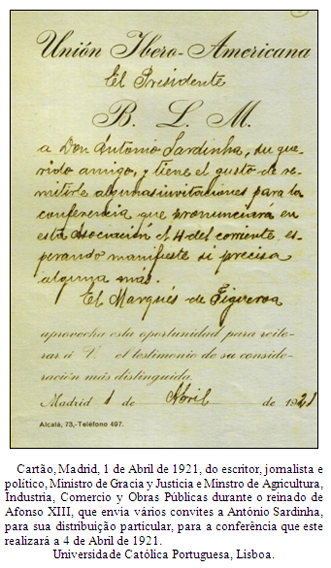 Unión Ibero-Americana
El Presidente
B. L. M.
a Don Antonio Sardinha, su que-
rido amigo, y tiene el gusto de re-
mitirle algunas invitaciones para la
conferencia que pronunciará en
esta Asociación el 4 del corriente, es-
perando manifieste si precisa
alguna más.
El Marqués de Figueroa
aprovecha esta oportunidad para reite-
rar á V. el testimonio de su conside-
ración más distinguida.
Madrid 1 de Abril de 1921
Alcalá, 73,-Teléfono 497.
Cartão, Madrid, 1 de Abril de 1921, do escritor, jornalista e
político, Ministro de Gracia y Justicia e Minstro de Agricultura,
Industria, Comercio y Obras Públicas durante o reinado de
Afonso XIII, que envia vários convites a António Sardinha,
para sua distribuição particular, para a conferência que este
realizará a 4 de Abril de 1921.
Universidade Católica Portuguesa, Lisboa.